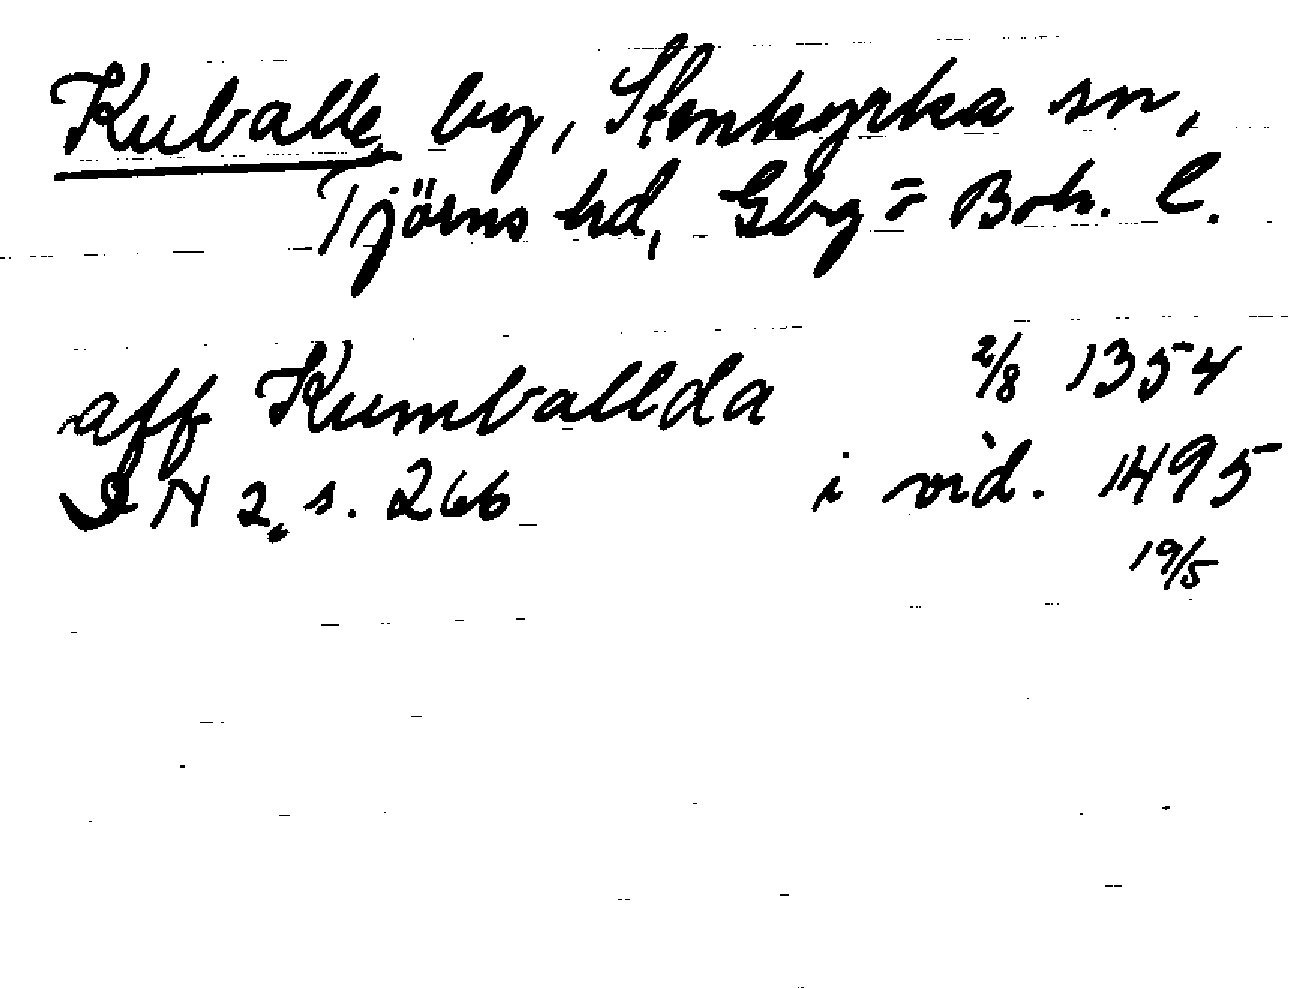 Kuballe by, Stenkyrka sn,
Tjörns hd, Gbg = Boh. l.
aff Kumballda 2/8 1354
DN 2. s. 266 i vid. 1495
19/5